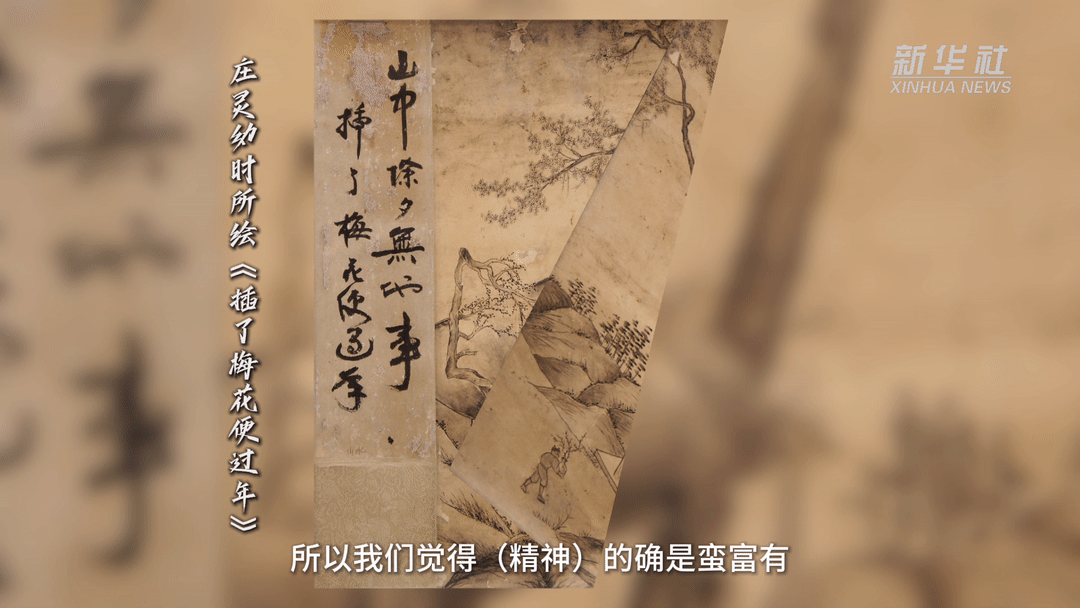 新华社
XINHUA NEWS
庄灵幼时所绘《插了梅花便过年》
山中除夕無他事
插了梅花便過年
所以我们觉得（精神）的确是蛮富有